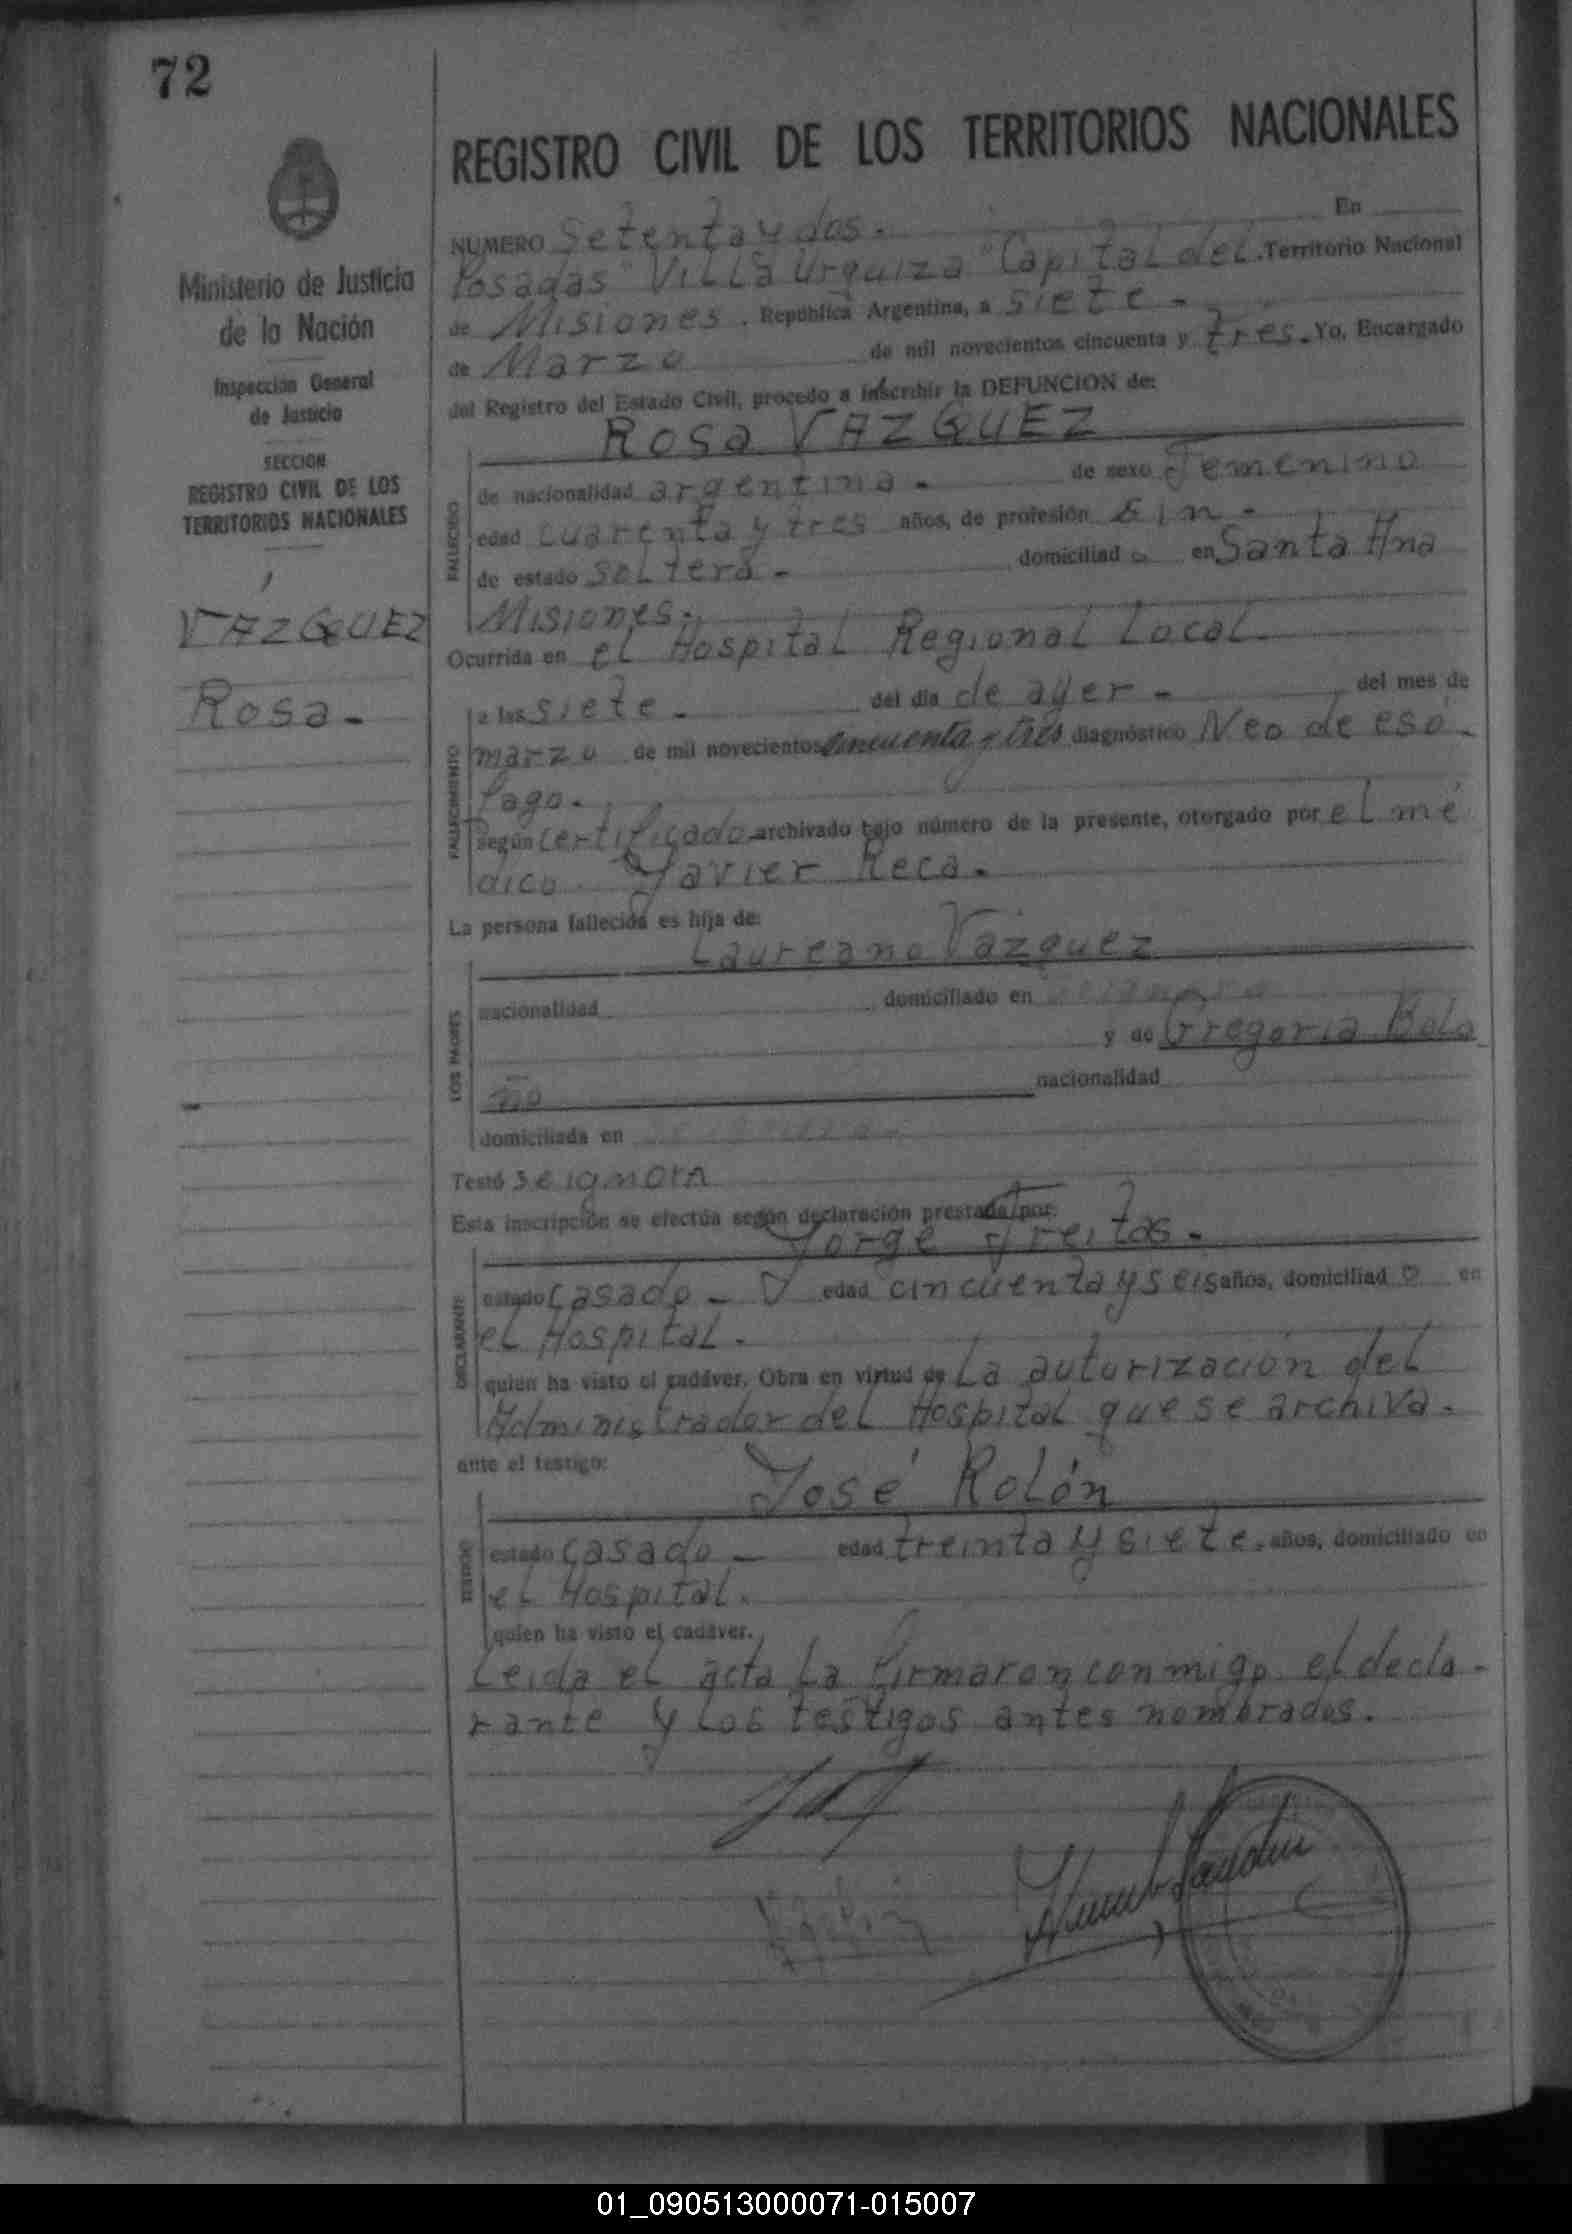 72
REGISTRO CIVIL DE LOS TERRITORIOS NACIONALES
Ministerio de Justicia
de la Nación
Inspección General
de Justicia
SECCION
REGISTRO CIVIL DE LOS
TERRITORIOS NACIONALES
VAZQUEZ
Rosa -
NUMERO Setenta y dos. En
Posadas "Villa Urquiza" Capital del Territorio Nacional
de Misiones. República Argentina, a siete -
de Marzo de mil novecientos cincuenta y tres. Yo, Encargado
del Registro del Estado Civil, procedo a inscribir la DEFUNCION de:
Rosa VAZQUEZ
FALLECIDO
de nacionalidad argentina - de sexo Femenino
edad cuarenta y tres años, de profesión Sin -
de estado soltera - domiciliad a en Santa Ana
Misiones.
Ocurrida en el Hospital Regional Local
FALLECIMIENTO
a las siete - del dia de ayer - del mes de
marzo de mil novecientos cincuenta y tres diagnóstico Neo de esó-
fago.
Según certificado archivado bajo número de la presente, otorgado por el mé
dico Javier Reca.
La persona fallecida es hija de:
Laureano Vázquez
LOS PADRES
nacionalidad , domiciliado en
y de Gregoria Bola
ño nacionalidad
domiciliada en
Testó Se ignora
Esta inscripción se efectúa según declaración prestada por:
Jorge Freitas.
DECLARANTE
estado casado - edad cincuenta y seis años, domiciliad o en
el Hospital.
quien ha visto el cadáver. Obra en virtud de La autorización del
Administrador del Hospital que se archiva.
ante el testigo:
José Rolón
TESTIGO
estado casado - edad treinta y siete. años, domiciliado en
el Hospital.
quien ha visto el cadáver.
Leida el acta la firmaron conmigo el decla-
rante y los testigos antes nombrados.
01_090513000071-015007